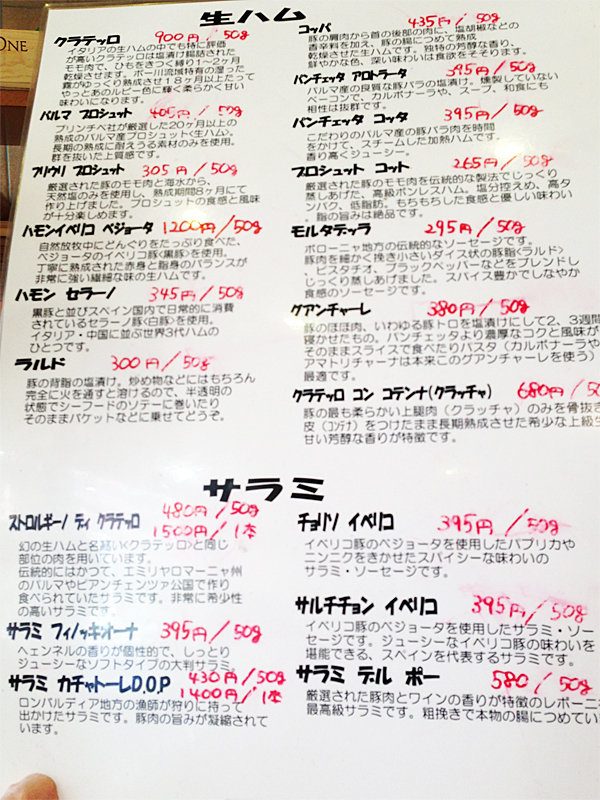 One
生ハム
クラテッロ 900円/50g
イタリアの生ハムの中でも特に評価
が高いクラテッロは塩漬け腸詰された
モモ肉で、ひもをきつく縛り1~2ヶ月
乾燥させます。ポー川流域特有の湿った
霧がゆっくり熟成させ18ヶ月以上たって
やっとあのルビー色に輝く柔らかく甘い
味わいになります。
パルマ プロシュット 405円/50g
プリンチペ社が厳選した20ヶ月以上の
熟成のパルマ産プロシュット<生ハム>。
長期の熟成に耐えうる素材のみを使用。
群を抜いた上質感です。
フリウリ プロシュット 305円/50g
厳選された豚のモモ肉と海水から、
天然塩のみを使用し、熟成期間8ヶ月にて
作り上げました。プロシュットの食感と風味
が十分楽しめます。
ハモンイベリコ ベジョータ 1200円/50g
自然放牧中にどんぐりをたっぷり食べた、
ベジョータのイベリコ豚<黒豚>を使用。
丁寧に熟成された赤身と脂身のバランスが
非常に強い繊細な味の生ハムです。
ハモン セラーノ 345円/50g
黒豚と並びスペイン国内で日常的に消費
されているセラーノ豚<白豚>を使用。
イタリア・中国に並ぶ世界3代ハムの
ひとつです。
ラルド 300円/50g
豚の背脂の塩漬け。炒め物などにはもちろん
完全に火を通すと溶けるので、半透明の
状態でシーフードのソテーに巻いたり
そのままバケットなどに乗せてどうぞ。
コッパ 435円/50g
豚の肩肉から首の後部の肉に、塩胡椒などの
香辛料を加え、豚の腸につめて熟成
乾燥させた生ハムです。独特の芳醇な香り、
鮮やかな色、深い味わいは食欲をそそります。
パンチェッタ アロトラータ 395円/50g
パルマ産の良質な豚バラの塩漬け、燻製していない
ベーコンで、カルボナーラや、スープ、和食にも
相性は抜群です。
パンチェッタ コッタ 395円/50g
こだわりのパルマ産の豚バラ肉を時間
をかけて、スチームした加熱ハムです。
香り高くジューシー。
プロシュット コット 265円/50g
厳選された豚のモモ肉を伝統的な製法でじっくり
蒸しあげた、高級ボンレスハム。塩分控えめ、高タ
ンパク、低脂肪。もちもちした食感と優しい味わい
、脂の旨みは絶品です。
モルタデッラ 295円/50g
ボローニャ地方の伝統的なソーセージです。
豚肉を細かく挽き小さいダイス状の豚脂<ラルド>
、ピスタチオ、ブラックペッパーなどをブレンドし
じっくり蒸しあげました。スパイス豊かでしなやか
食感のソーセージです。
グアンチャーレ 380円/50g
豚のほほ肉、いわゆる豚トロを塩漬けにして2、3週間
寝かせたもの。パンチェッタより濃厚なコクと風味が
そのままスライスで食べたりパスタ(カルボナーラや
アマトリチャーナは本来このグアンチャーレを使う)
最適です。
クラテッロ コン コテンナ(クラッチャ) 680円/50
豚の最も柔らかい上腿肉(クラッチャ)のみを骨抜き
皮(コンテナ)をつけたまま長期熟成させた希少な上級生
甘い芳醇な香りが特徴です。
サラミ
ストロルギーノ ディ クラテッロ 480円/50g
1500円/1本
幻の生ハムと名高い<クラテッロ>と同じ
部位の肉を用いています。
伝統的にはかつて、エミリヤロマーニャ州
のパルマやピアンチェンツァ公国で作り
食べられていたサラミです。非常に希少性
の高いサラミです。
サラミ フィノッキオーナ 395円/50g
ヘェンネルの香りが個性的で、しっとり
ジューシーなソフトタイプの大判サラミ。
サラミ カチャトーレD.O.P 430円/50g
1400円/1本
ロンバルディア地方の漁師が狩りに持って
出かけたサラミです。豚肉の旨みが凝縮されて
います。
チョリソ イベリコ 395円/50g
イベリコ豚のベジョータを使用したパプリカや
ニンニクをきかせたスパイシーな味わいの
サラミ・ソーセージです。
サルチチョン イベリコ 395円/50g
イベリコ豚のベジョータを使用したサラミ・ソー
セージです。ジューシーなイベリコ豚の味わいを
堪能できる、スペインを代表するサラミです。
サラミ デル ポー 580/50g
厳選された豚肉とワインの香りが特徴のレポーニ
最高級サラミです。粗挽きで本物の腸につめてい